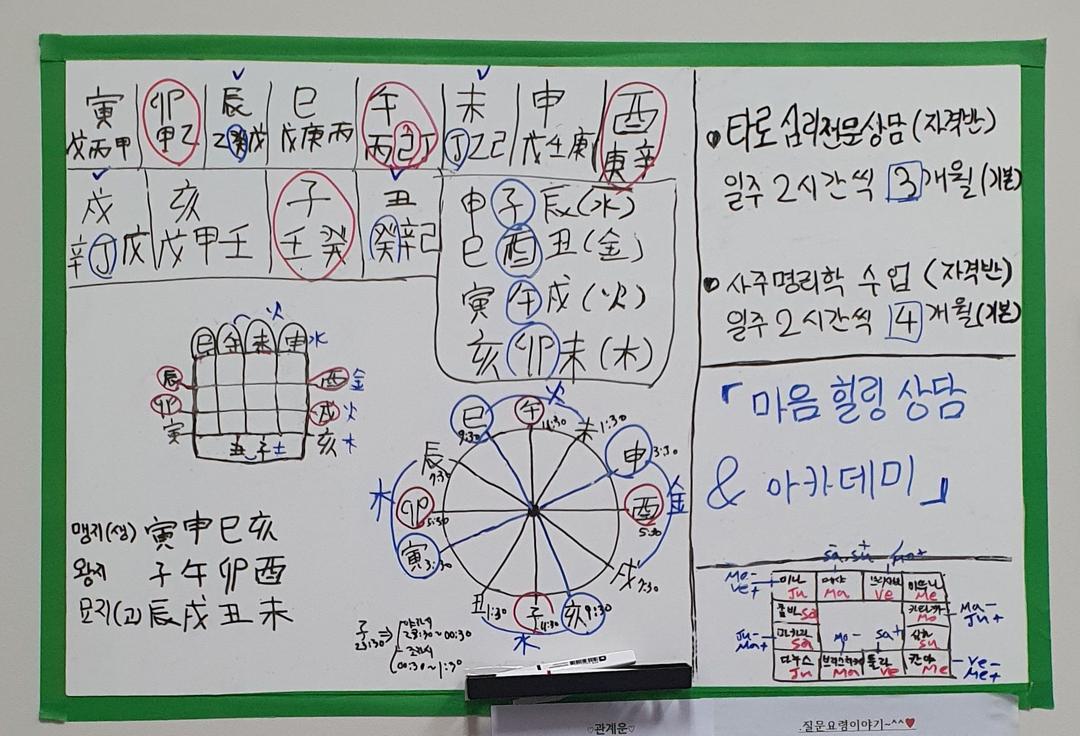 寅 卯 辰 巳 午 未 申 酉
戊丙甲 甲乙 乙癸戊 戊庚丙 丙己丁 丁乙己 戊壬庚 庚辛
戌 亥 子 丑
辛丁戊 戊甲壬 壬癸 癸辛己
申子辰(水)
巳酉丑(金)
寅午戌(火)
亥卯未(木)
火
巳 午 未 申 水
辰 酉 金
卯 戌 火
寅 亥 木
丑 子 土
맹지(생) 寅申巳亥
왕지 子午卯酉
묘지(고) 辰戌丑未
火
巳 9:30
午 11:30
未 1:30
申 3:30
金
酉 5:30
戌 7:30
亥 9:30
子
水
丑 1:30
寅 3:30
卯 5:30
木
辰 7:30
子
23:30 ⇒
야자시
23:30~00:30
조자시
00:30~1:30
타로심리전문상담(자격반)
일주 2시간씩 3개월(기본)
사주명리학 수업 (자격반)
일주 2시간씩 4개월(기본)
「마음힐링 상담
& 아카데미」
Sa- Su+
Mo-
Ve+
미나 Ju
Ma
Ve
미투나 Me
쿰바 Sa
Mo
Ma-
Ju+
Ju-
Ma+
마카라 Sa
Mo-
Sa+
심하 Su
다누스 Ju
Ma
툴라 Ve
칸야 Me
Ve-
Me+
♡관계운♡
.질문요령이야기~^^♥